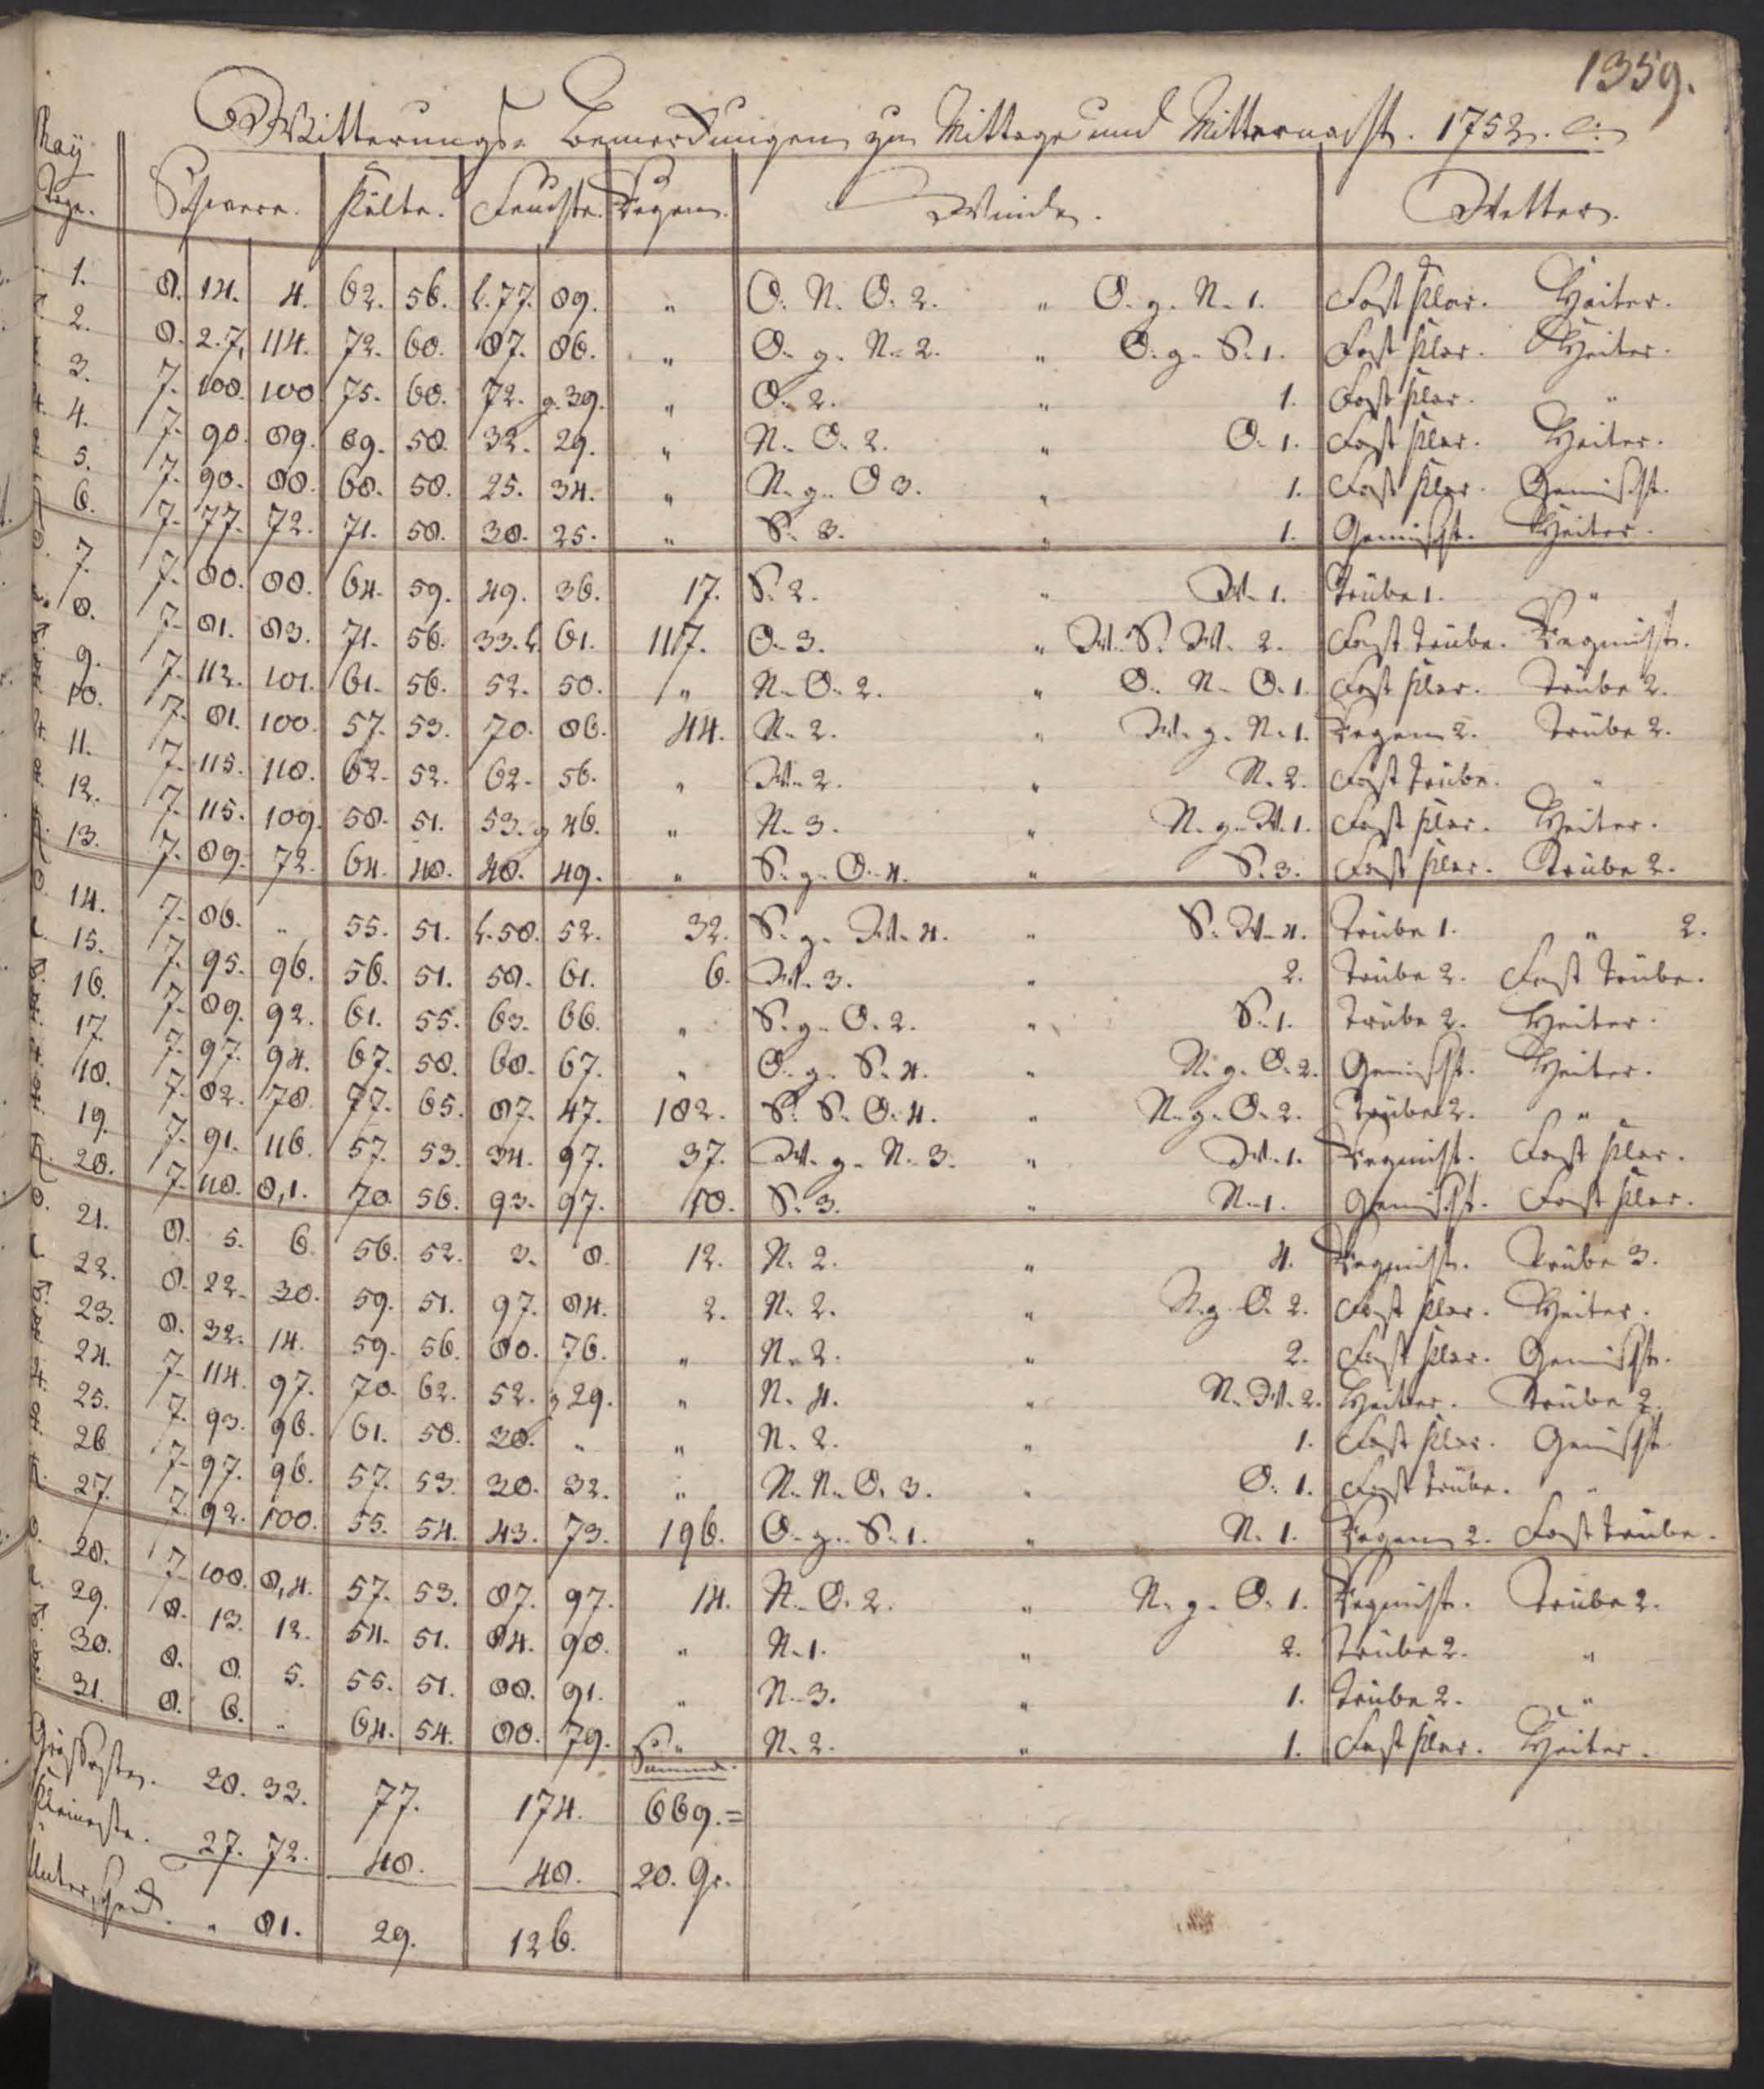 1359.
Witterungs- Bemerckungen zu Mittage und Mitternacht. 1752.
May
Tage. Schwere. Kälte. Feuchte. Regen. Winde. Wetter.
1. 8. 14. 4. 62. 56. l. 77. 89. " O. N. O. 2. " O. g. N. 1. Fast klar. Heiter.
2. 8. 2. 7, 114. 72. 60. 87. 86. " O. g. N. 2. " O. g. S. 1. Fast klar. Heiter.
3. 7. 108. 100 75. 60. 72. g. 39. " O. 2. " 1. Fast klar. "
4. 7. 90. 89. 69. 58. 32. 29. " N. O. 2. " O. 1. Fast klar. Heiter.
5. 7. 90. 88. 68. 58. 25. 34. " N. g. O 3. " 1. Fast klar. Gemischt.
6. 7. 77. 72. 71. 58. 30. 25. " S. 3. " 1. Gemischt. Heiter.
7. 7. 80. 88. 64. 59. 49. 36. 17. S. 2. " W. 1. Trübe 1. "
8. 7. 81. 83. 71. 56. 33. l. 61. 117. O. 3. " W. S. W. 2. Fast trübe. Regnicht.
9. 7. 112. 101. 61. 56. 52. 50. " N. O. 2. " O. N. O. 1. Fast klar. Trübe 2.
10. 7. 81. 100. 57. 53. 70. 86. 44. N. 2. " W. g. N. 1. Regen 2. Trübe 2.
11. 7. 115. 118. 62. 52. 62. 56. " W. 2. " N. 2. Fast trübe. "
12. 7. 115. 109. 58. 51. 53. g 46. " N. 3. " N. g. W. 1. Fast klar. Heiter.
13. 7. 89. 72. 64. 48. 48. 49. " S. g. O. 4. " S. 3. Fast klar. Trübe 2.
14. 7. 86. " 55. 51. l. 58. 52. 32. S. g. W. 4. " S. W. 4. Trübe 1. " 2.
15. 7. 95. 96. 56. 51. 58. 61. 6. W. 3. " 2. Trübe 2. Fast trübe.
16. 7. 89. 92. 61. 55. 63. 66. " S. g. O. 2. " S. 1. Trübe 2. Heiter.
17. 7. 97. 94. 67. 58. 68. 67. " O. g. S. 4. " N. g. O. 2. Gemischt. Heiter.
18. 7. 82. 78. 77. 65. 87. 47. 182. S. S. O. 4. " N. g. O. 2. Trübe 2. "
19. 7. 91. 116. 57. 53. 34. 97. 37. W. g. N. 3. " W. 1. Regnicht. Fast klar.
20. 7. 118. 8, 1. 70. 56. 93. 97. 10. S. 3. " N. 1. Gemischt. Fast klar.
21. 8. 5. 6. 56. 52. 3. 8. 12. N. 2. " 4. Regnicht. Trübe 3.
22. 8. 22. 30. 59. 51. 97. 84. 2. N. 2. " N. g. O. 2. Fast klar. Heiter.
23. 8. 32. 14. 59. 56. 80. 76. " N. 2. " 2. Fast klar. Gemischt.
24. 7. 114. 97. 70. 62. 52. g 29. " N. 4. " N. W. 2. Heiter. Trübe 2.
25. 7. 93. 96. 61. 50. 30. " " N. 2. " 1. Fast klar. Gemischt.
26. 7. 97. 96. 57. 53. 30. 32. " N. N. O. 3. " O. 1. Fast trübe. "
27. 7. 92. 100. 55. 54. 43. 73. 196. O. g. S. 1. " N. 1. Regen 2. Fast trübe.
28. 7. 108. 8, 4. 57. 53. 87. 97. 14. N. O. 2. " N. g. O. 1. Regnicht. Trübe 2.
29. 8. 13. 12. 54. 51. 84. 90. " N. 1. " 2. Trübe 2. "
30. 8. 8. 5. 55. 51. 88. 91. " N. 3. " 1. Trübe 2. "
31. 8. 6. " 64. 54. 80. 79. " N. 2. " 1. Fast klar. Heiter.
Summa.
Grösseste. 28. 33. 77. 174. 669. =
Kleineste. 27. 72. 48. 48. 20. Gr.
Unterscheid. " 81. 29. 126.